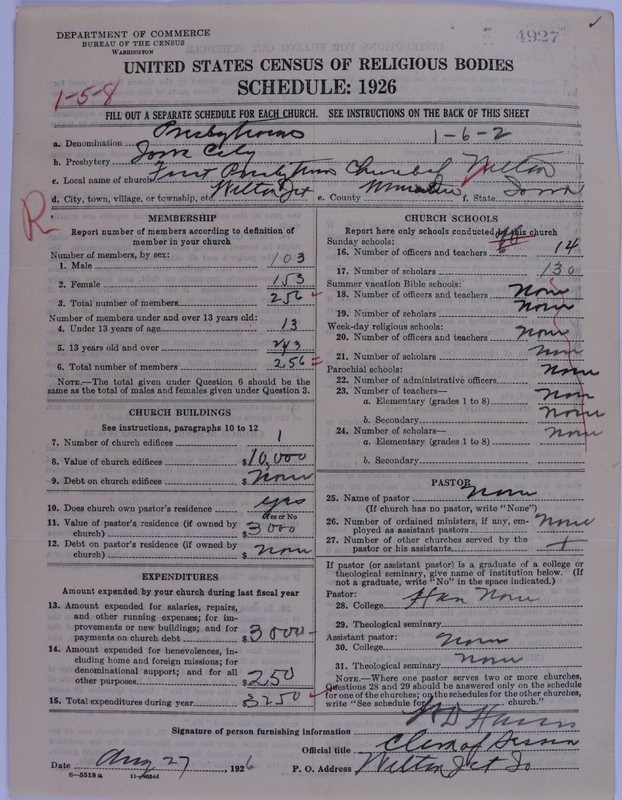 DEPARTMENT OF COMMERCE
BUREAU OF THE CENSUS
WASHINGTON
4927
UNITED STATES CENSUS OF RELIGIOUS BODIES
SCHEDULE: 1926
1-5-8
FILL OUT A SEPARATE SCHEDULE FOR EACH CHURCH. SEE INSTRUCTIONS ON THE BACK OF THIS SHEET
a. Denomination Presbyterian 1-6-2
b. Presbytery Iowa City
c. Local name of church First Presbyterian Church of Wilton
d. City, town, village, or township, etc. Wilton Jct e. County Muscatine f. State Iowa
R
MEMBERSHIP
Report number of members according to definition of
member in your church
Number of members, by sex:
1. Male 103
2. Female 153
3. Total number of members 256
Number of members under and over 13 years old:
4. Under 13 years of age 13
5. 13 years old and over 243
6. Total number of members 256
NOTE.—The total given under Question 6 should be the
same as the total of males and females given under Question 3.
CHURCH BUILDINGS
See instructions, paragraphs 10 to 12
7. Number of church edifices 1
8. Value of church edifices $10,000
9. Debt on church edifices $None
10. Does church own pastor's residence yes
Yes or No
11. Value of pastor's residence (if owned by
church) $3000
12. Debt on pastor's residence (if owned by
church) $None
EXPENDITURES
Amount expended by your church during last fiscal year
13. Amount expended for salaries, repairs,
and other running expenses; for im-
provements or new buildings; and for
payments on church debt $3000-
14. Amount expended for benevolences, in-
cluding home and foreign missions; for
denominational support; and for all
other purposes $250
15. Total expenditures during year $3250
CHURCH SCHOOLS
Report here only schools conducted by this church
Sunday schools:
16. Number of officers and teachers 14
17. Number of scholars 130
Summer vacation Bible schools:
18. Number of officers and teachers None
19. Number of scholars None
Week-day religious schools:
20. Number of officers and teachers None
21. Number of scholars None
Parochial schools:
22. Number of administrative officers None
23. Number of teachers—
a. Elementary (grades 1 to 8) None
b. Secondary None
24. Number of scholars—
a. Elementary (grades 1 to 8) None
b. Secondary
PASTOR
25. Name of pastor None
(If church has no pastor, write "None")
26. Number of ordained ministers, if any, em-
ployed as assistant pastors None
27. Number of other churches served by the
pastor or his assistants
If pastor (or assistant pastor) is a graduate of a college or
theological seminary, give name of institution below. (If
not a graduate, write "No" in the space indicated.)
Pastor:
28. College Have None
29. Theological seminary
Assistant pastor:
30. College None
31. Theological seminary None
NOTE.—Where one pastor serves two or more churches,
Questions 28 and 29 should be answered only on the schedule
for one of the churches; on the schedules for the other churches,
write "See schedule for church."
Signature of person furnishing information
Official title Clerk of Session
Date Aug 27, 1926 P. O. Address Wilton Jct Io
6-5518a